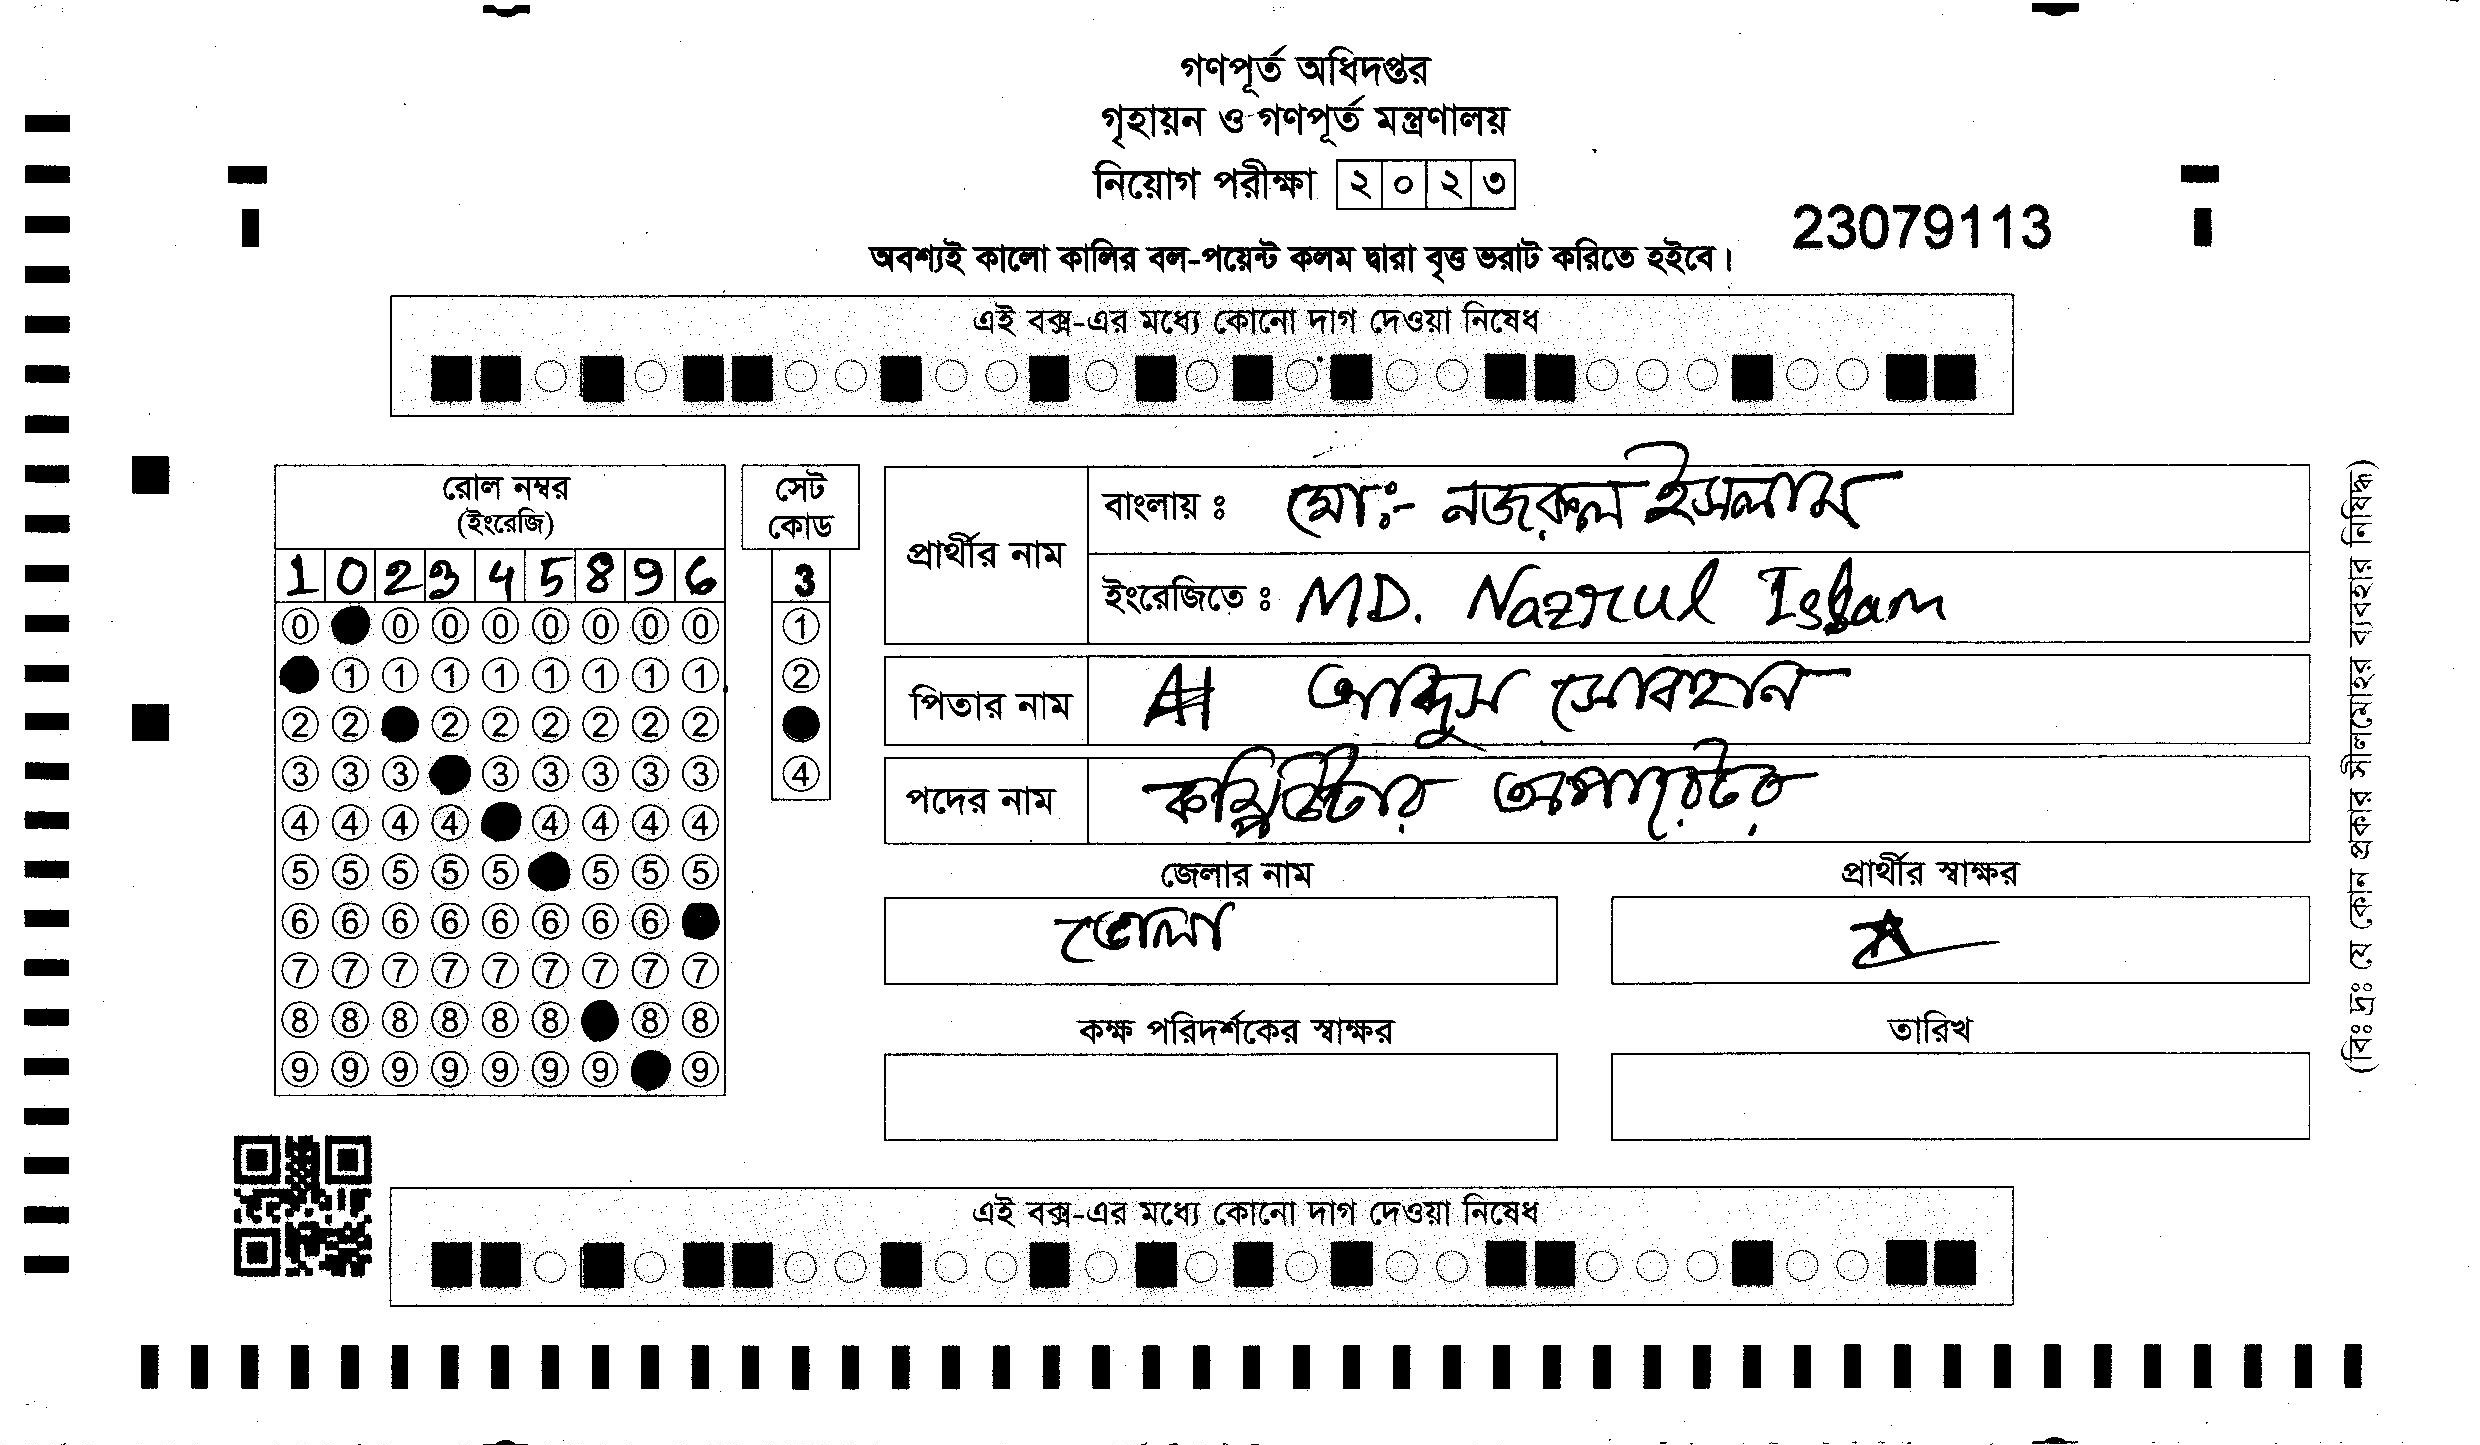 গণপূর্ত অধিদপ্তর
গৃহায়ন ও গণপূর্ত মন্ত্রণালয়
নিয়োগ পরীক্ষা ২০২৩
23079113
অবশ্যই কালো কালির বল-পয়েন্ট কলম দ্বারা বৃত্ত ভরাট করিতে হইবে।
এই বক্স-এর মধ্যে কোনো দাগ দেওয়া নিষেধ
রোল নম্বর
(ইংরেজি)
1 0 2 3 4 5 8 9 6
0 0 0 0 0 0 0 0
1 1 1 1 1 1 1 1
2 2 2 2 2 2 2 2
3 3 3 3 3 3 3 3
4 4 4 4 4 4 4 4
5 5 5 5 5 5 5 5
6 6 6 6 6 6 6 6
7 7 7 7 7 7 7 7 7
8 8 8 8 8 8 8 8
9 9 9 9 9 9 9 9
সেট
কোড
3
1
2
4
প্রার্থীর নাম
বাংলায় ঃ মোঃ- নজরুল ইসলাম
ইংরেজিতে ঃ MD. Nazrul Islam
পিতার নাম আব্দুস সোবহান
পদের নাম কম্পিউটার অপারেটর
জেলার নাম
ভোলা
প্রার্থীর স্বাক্ষর
কক্ষ পরিদর্শকের স্বাক্ষর
তারিখ
(বিঃ দ্রঃ যে কোন প্রকার সীলমোহর ব্যবহার নিষিদ্ধ)
এই বক্স-এর মধ্যে কোনো দাগ দেওয়া নিষেধ